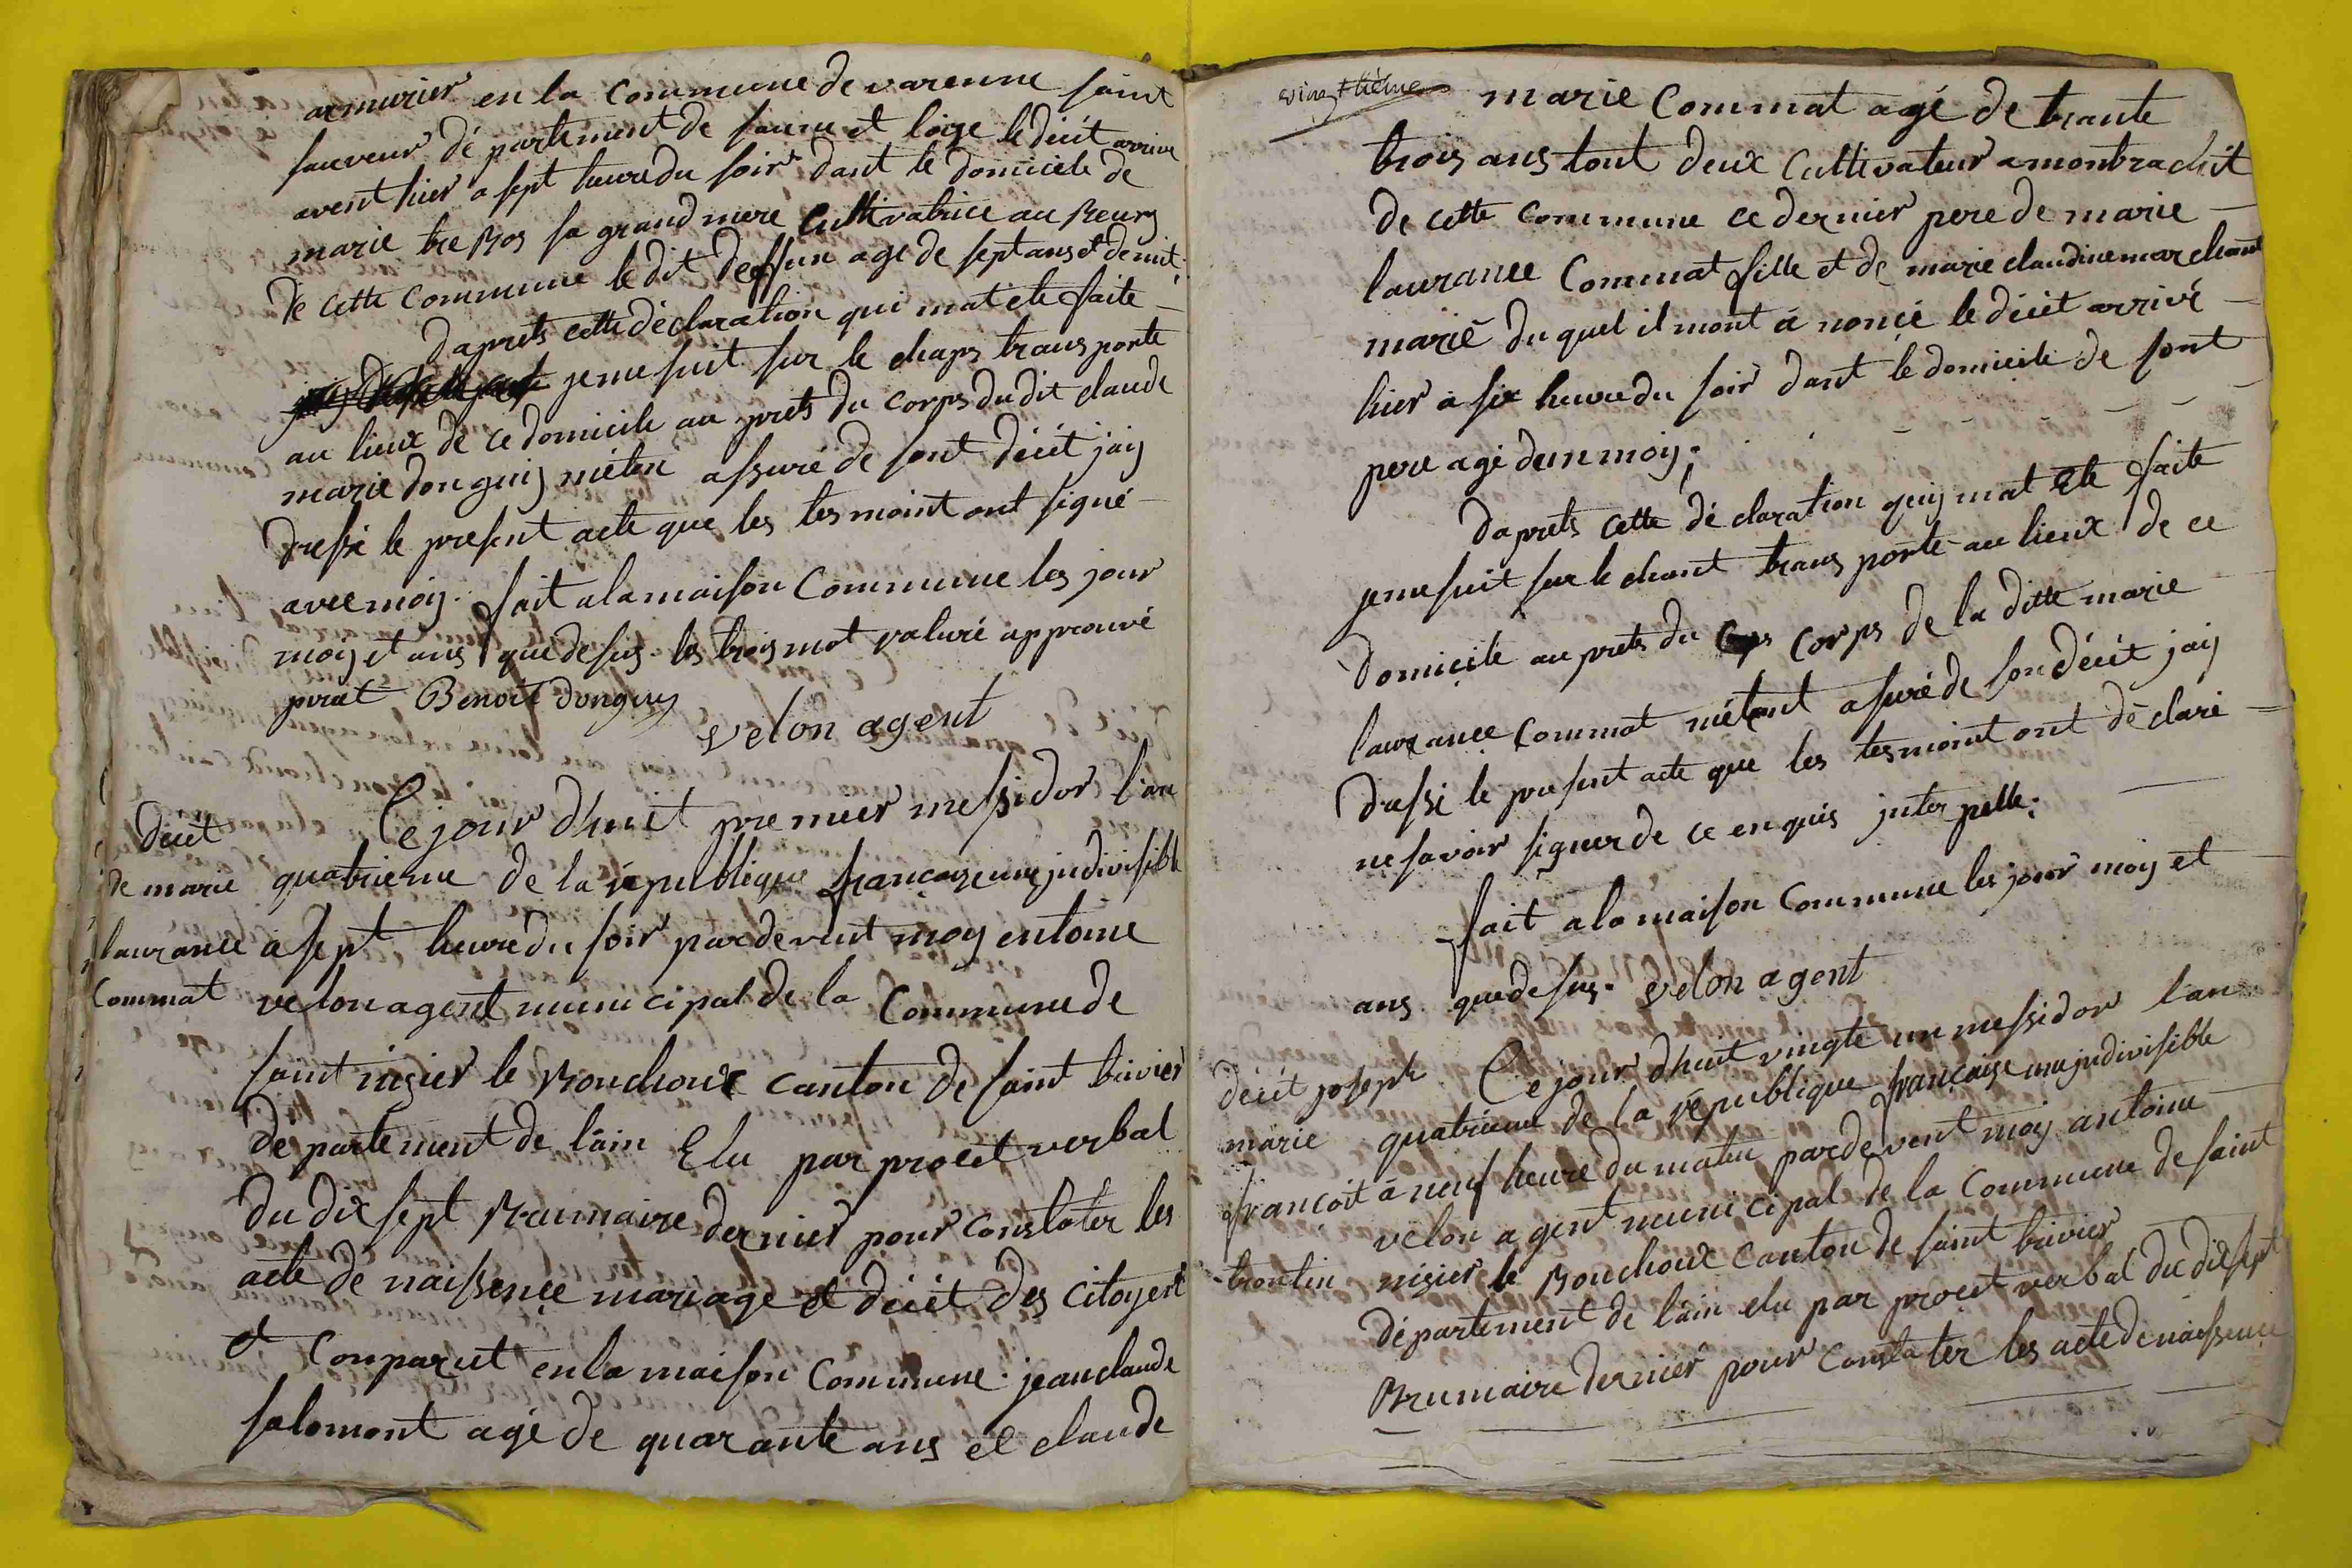 armurier en la Commune de varenne saint
sauveur dé partement de saune et loige le décét arrivé
avent hier a sept heure du soir dant le domicile de
marie tre Bos sa grand mere Cultivatrice au Bourg
de cette Commune le dit deffun agé de sept ans et demit.
Daprets cette déclaration qui mat ete faite
je me suit sur le champs trans porté
au lieux de ce domicile au prets du corps du dit claude
marie donguy méten assuré de sont décét jaÿ
dressé le present acte que les tesmoint ont signé
avec moy. fait a la maison Commune les jour
moy et ans que desus. les trois mot raturé approuvé
prat Benoit Donguy
velon agent
décét
de marie
laurance
Commat
Ce jour dhuit premier messidor l'an
quatrieme de la république françoize une jndivisible
a sept heure du soir par devent moy entoine
velon agent municipal de la Commune de
saint nisier le Bouchoux canton de saint trivier
dé partement de l'ain Elu par procét verbal
du dix sept Brumaire dernier pour constater les
acte de naissence mariage et décét des citoyent
et Conparut en la maison Commune. jean claude
salomont agé de quarante ans et claude
vingtième
marie Commat agé de trante
trois ans tout deux Cultivateur a montrachit
de cette commune ce dernier pere de marie
laurance Commat fille et de marie claudine marchant
marié du quel il mont a noncé le décét arrivé
hier a six heure du soir dant le domicile de sont
pere agé dun moy;
Daprets cette dé claration quy mat Ete faite
je me suit sur le chant trans porté au lieux de ce
domicile au prets du corps de la ditte marie
laurance Commat métant assuré de son décét jaÿ
dressé le present acte que les tesmoint ont déclaré
ne savoir signer de ce enquis jnter pellé;
fait a la maison Commune les jour moy et
ans que desus. velon agent
décét joseph
marie
françoit
troulin
Ce jour dhuit vingte un messidor l'an
quatrieme de la république française une jndivisible
a neuf heure du matin par devent moy antoine
velon agent municipal de la Commune de saint
nisier le Bouchoux Canton de saint trivier
département de l'ain elu par procét verbal du dix sept
Brumaire dernier pour Constater les acte de naissence